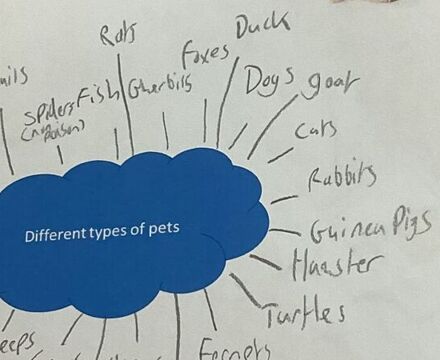 Rats
Duck
Foxes
Gherbils
Fish
Spiders
(non poison)
Dogs
goat
Cats
Rabbits
Guinea Pigs
Hamster
Turtles
Different types of pets
Ferrets